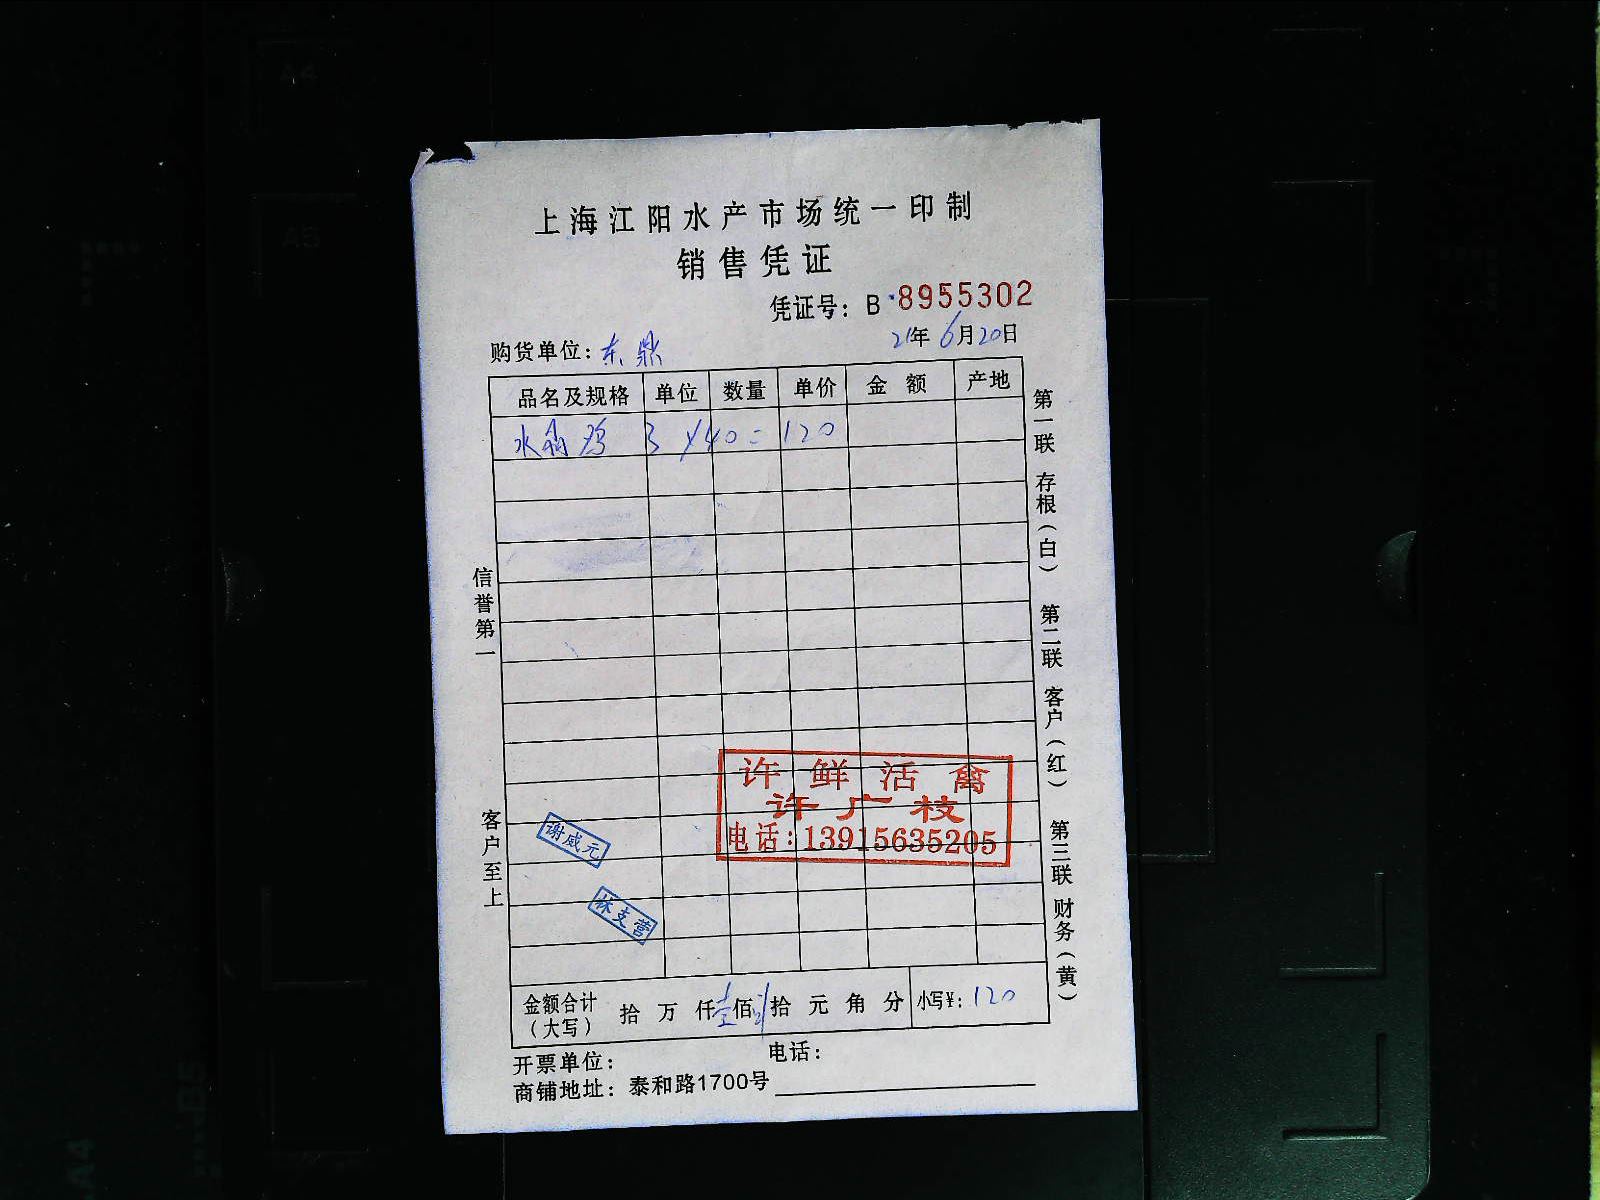 上海江阳水产市场统一印制
销售凭证
凭证号：B 8955302
购货单位：东鼎 21年6月20日
品名及规格 单位 数量 单价 金额 产地
水晶鸡 3 ×40=120
信誉第一
客户至上
第一联 存根（白） 第二联 客户（红） 第三联 财务（黄）
许鲜活禽
许广枝
电话：13915635205
谢威元
林支营
金额合计（大写） 拾 万 仟 壹佰 贰拾 元 角 分 小写¥：120
开票单位： 电话：
商铺地址：泰和路1700号
A4
A5
B5
A4